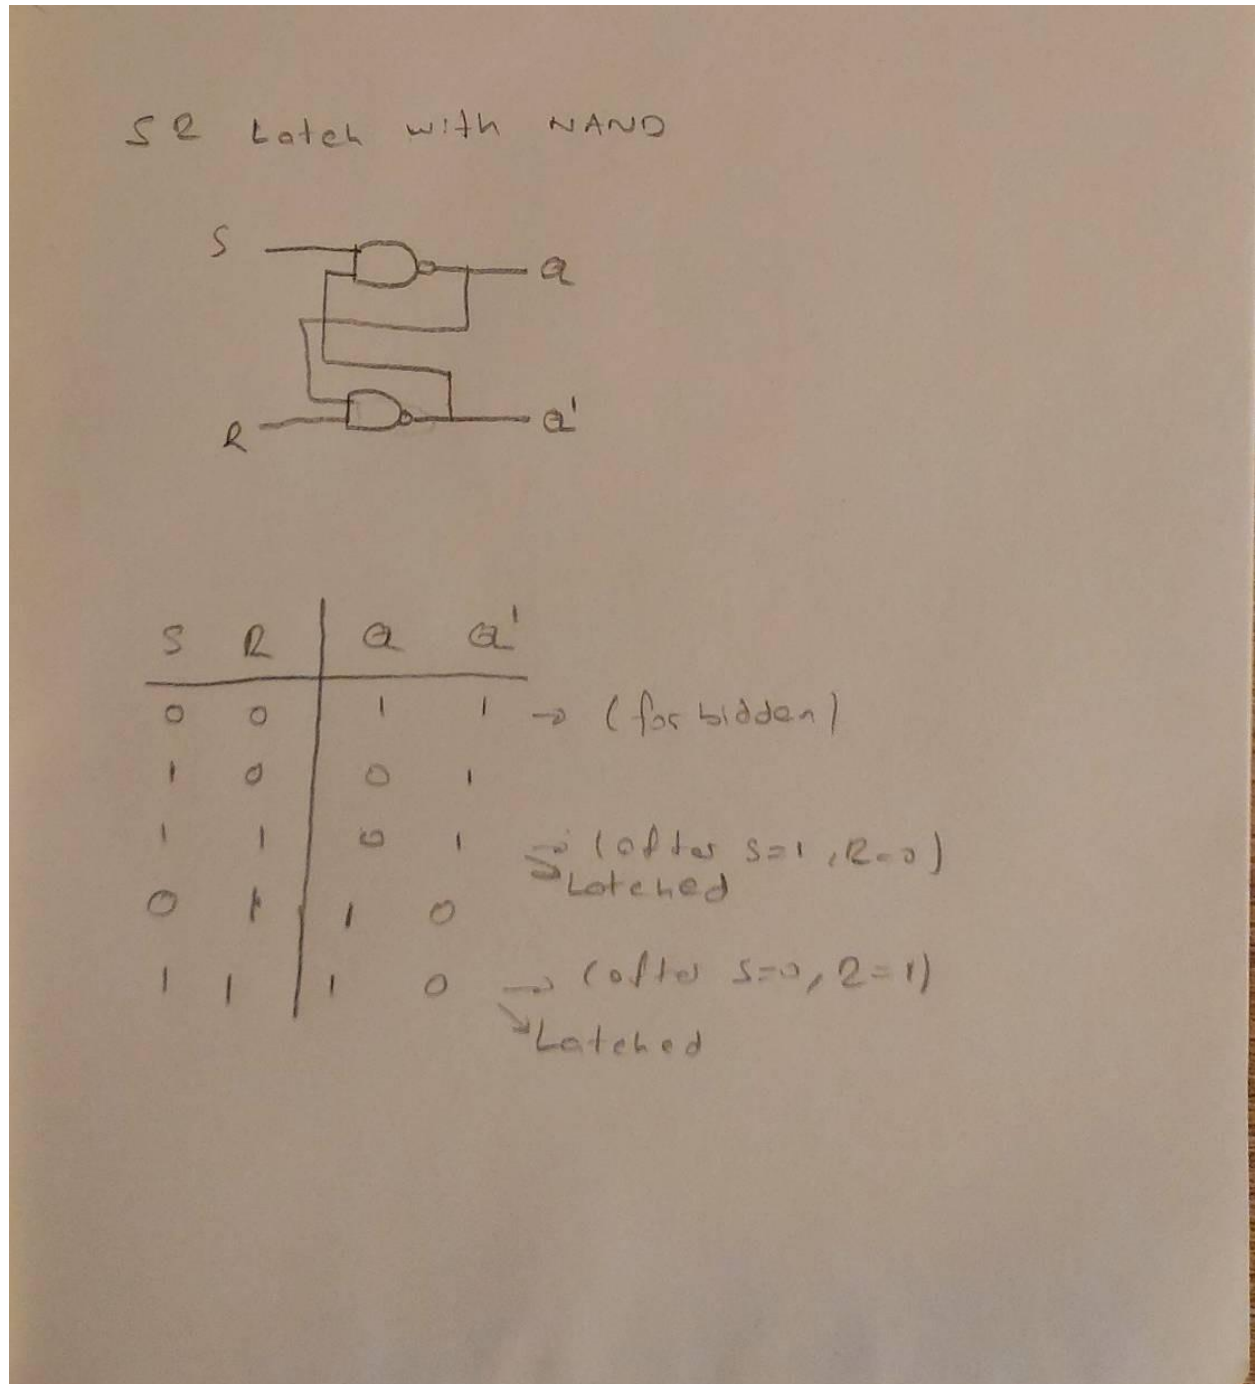 SR Latch with NAND
S
Q
R
Q'
S R Q Q'
0 0 1 1 → (forbidden)
1 0 0 1
1 1 0 1 → (after S=1, R=0)
↘ Latched
0 1 1 0
1 1 1 0 → (after S=0, R=1)
↘ Latched